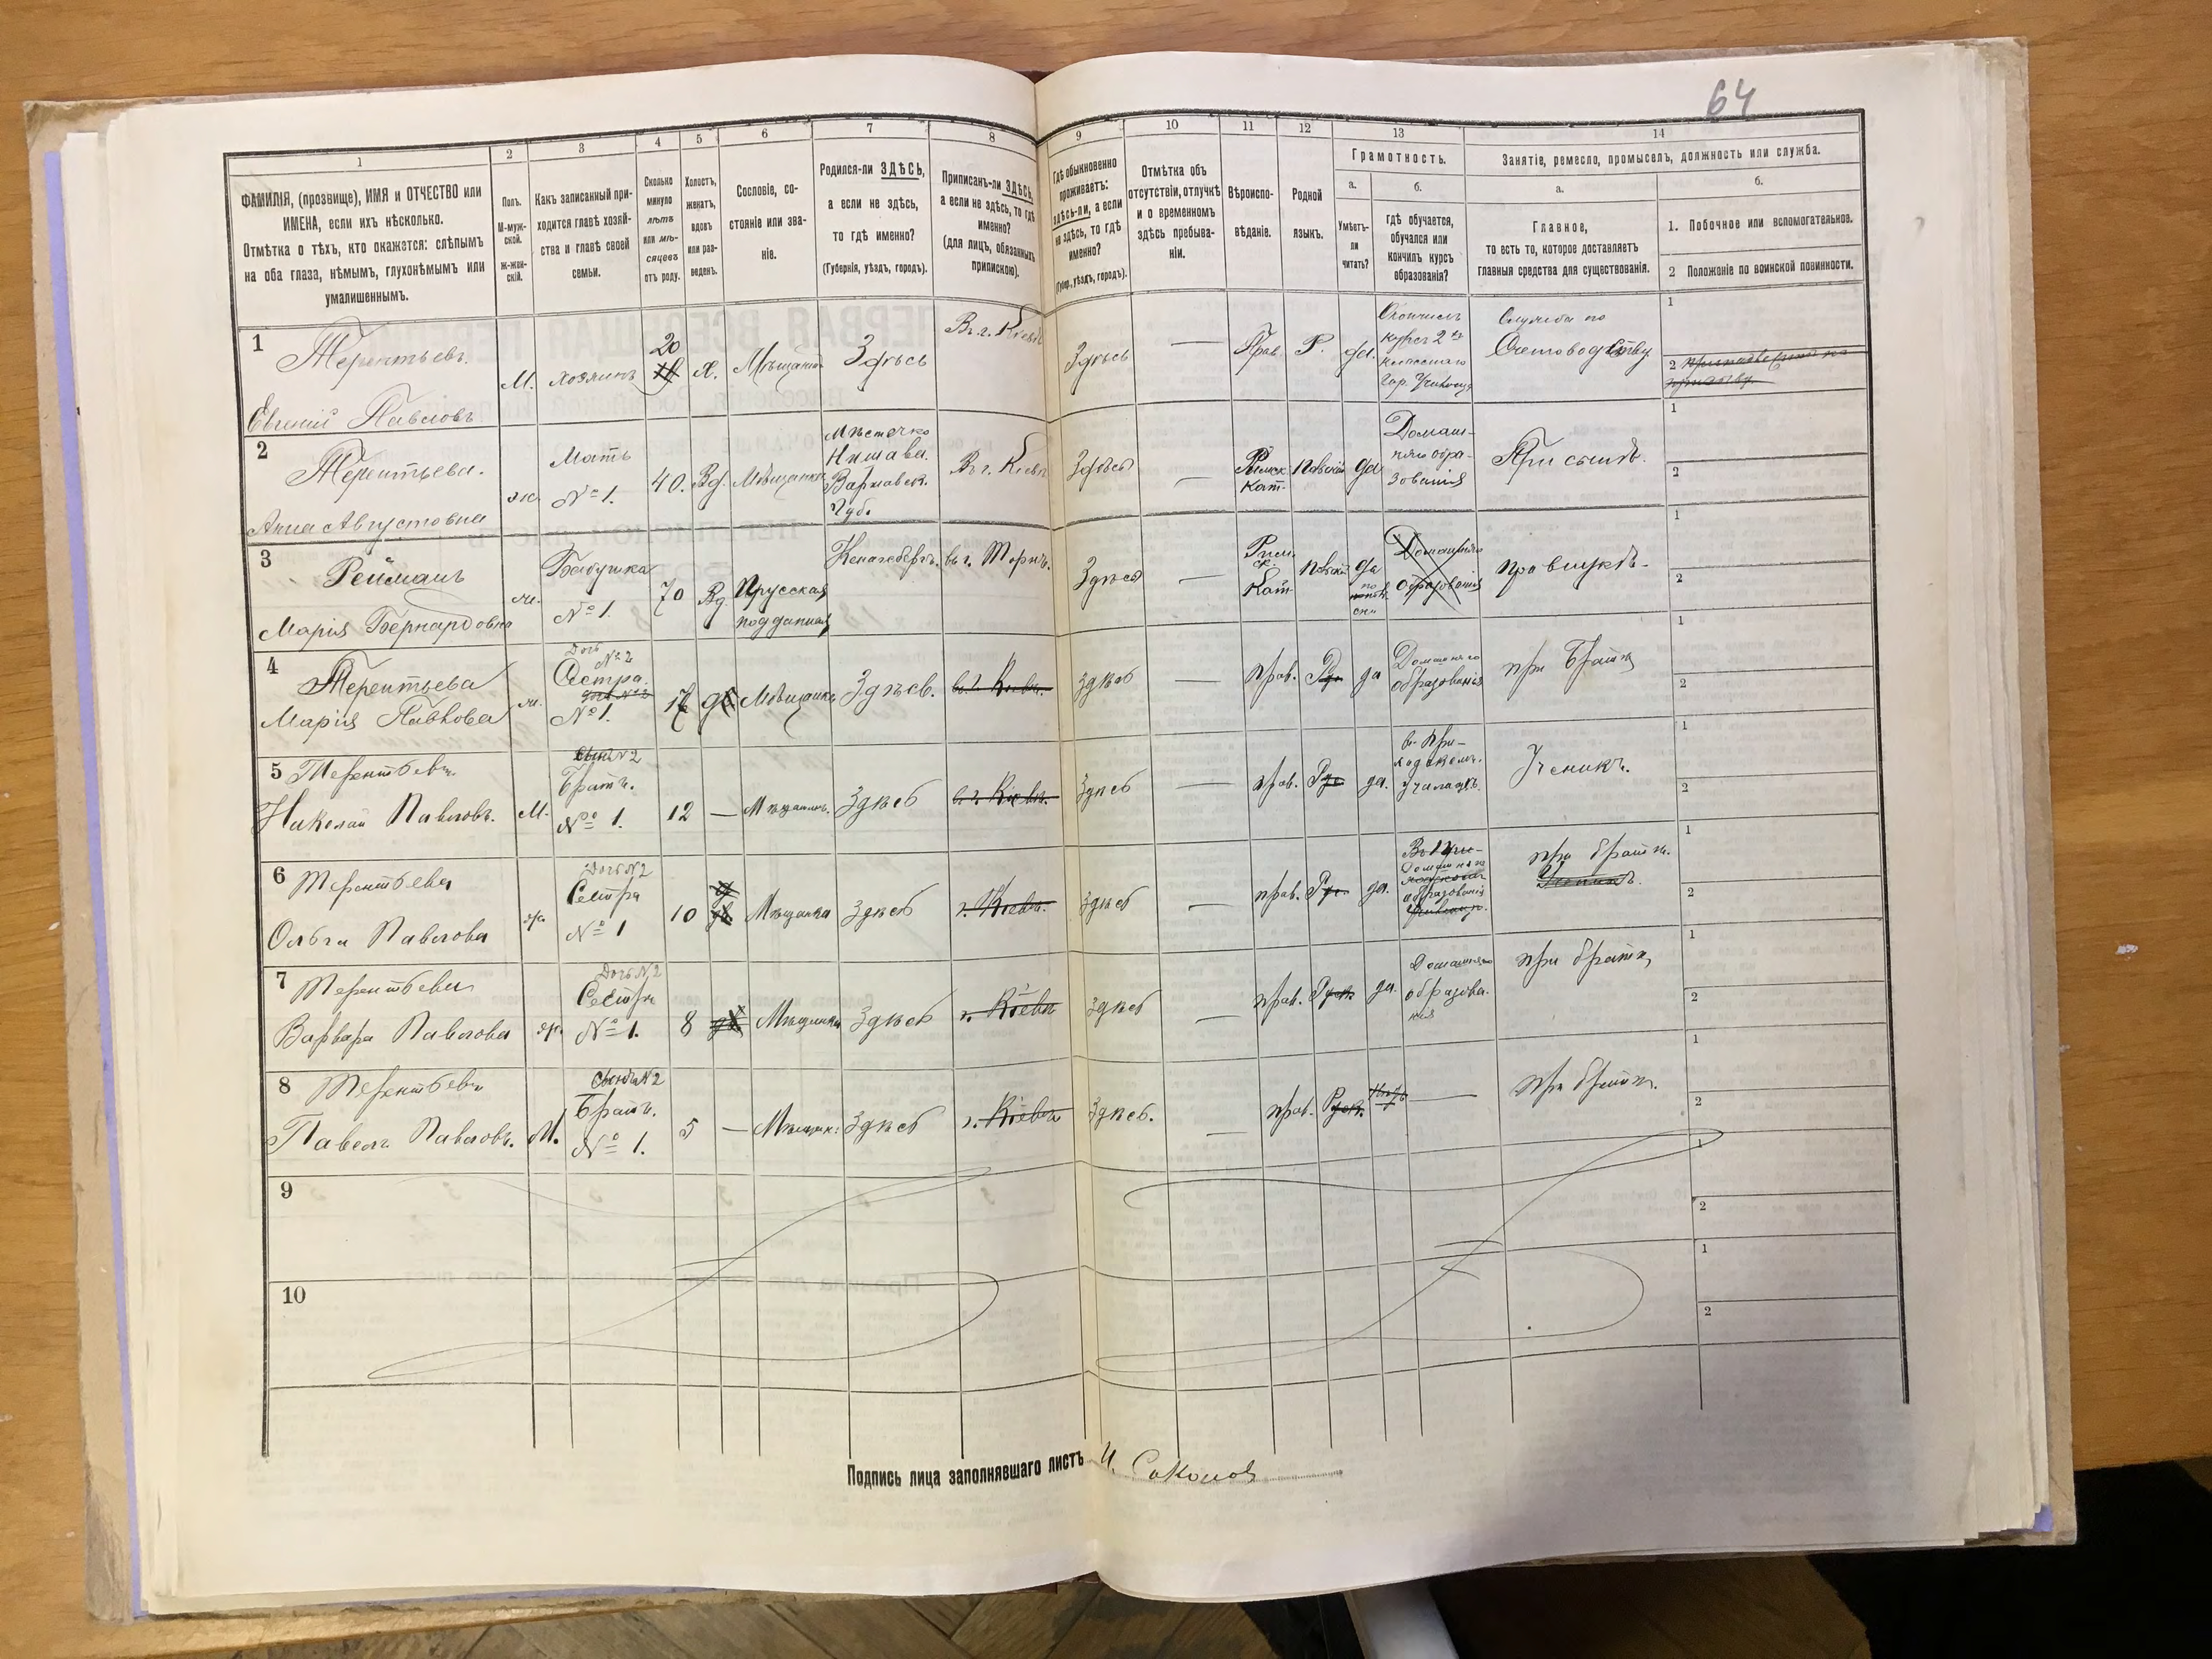 64
1 2 3 4 5 6 7 8 9 10 11 12 13 14
ФАМИЛІЯ, (прозвище), ИМЯ и ОТЧЕСТВО или
ИМЕНА, если ихъ нѣсколько.
Отмѣтка о тѣхъ, кто окажется: слѣпымъ
на оба глаза, нѣмымъ, глухонѣмымъ или
умалишеннымъ.
Полъ.
М-муж-
ской.
Ж-жен-
скій.
Какъ записанный при-
ходится главѣ хозяй-
ства и главѣ своей
семьи.
Сколько
минуло
лѣтъ
или мѣ-
сяцевъ
отъ роду.
Холостъ,
женатъ,
вдовъ
или раз-
веденъ.
Сословіе, со-
стояніе или зва-
ніе.
Родился-ли ЗДѢСЬ,
а если не здѣсь,
то гдѣ именно?
(Губернія, уѣздъ, городъ).
Приписанъ-ли ЗДѢСЬ,
а если не здѣсь, то гдѣ
именно?
(для лицъ, обязанныхъ
припискою).
Гдѣ обыкновенно
проживаетъ:
здѣсь-ли, а если
не здѣсь, то гдѣ
именно?
(Губер., уѣздъ, городъ).
Отмѣтка объ
отсутствіи, отлучкѣ
и о временномъ
здѣсь пребыва-
ніи.
Вѣроиспо-
вѣданіе.
Родной
языкъ.
Грамотность.
а.
Умѣетъ-
ли
читать?
б.
гдѣ обучается,
обучался или
кончилъ курсъ
образованія?
Занятіе, ремесло, промыселъ, должность или служба.
а.
Главное,
то есть то, которое доставляетъ
главныя средства для существованія.
б.
1. Побочное или вспомогательное.
2 Положеніе по воинской повинности.
1
Терентьевъ
Евгеній Павловъ
М. хозяинъ 20 Х. Мѣщанинъ Здѣсь Въ г. Кіевѣ
Здѣсь — Прав. Р. да.
Окончилъ
курсъ 2хъ
класснаго
Гор. Училища
Служба по
Счетоводству
1
2
2
Терентьева.
Анна Августовна
ж.
Мать
№ 1.
40. Вд. Мѣщанка
Мѣстечко
Нишава.
Варшавск.
Губ.
Въ г. Кіевѣ
Здѣсь —
Римск
Кат.
Польскій да
Домаш-
няго обра-
зованія
При сынѣ.
1
2
3
Рейманъ
Марія Бернардовна
ж.
Бабушка
№ 1.
70 Вд.
Прусская
подданная
Кенигсбергъ. въ г. Торнѣ.
Здѣсь —
Рим.
ск.
Кат
Польскій да
Домашняго
образованія
при внукѣ.
1
2
4
Терентьева
Марія Павлова
ж.
Дочь
№ 2
Сестра.
№ 1.
17 дѣ Мѣщанка Здѣсь. въ г. Кіевѣ.
здѣсь — прав. Рус. да
Домашняго
образованія
при братѣ
1
2
5 Терентьевъ
Николай Павловъ.
М.
Сынъ №2
Братъ.
№ 1.
12 — Мѣщанинъ. Здѣсь въ г. Кіевѣ.
Здѣсь — прав. Рус да.
въ При-
ходскомъ.
училищѣ.
Ученикъ.
1
2
6 Терентьева
Ольга Павлова
ж.
Дочь №2
Сестра
№ 1
10 Мѣщанка Здѣсь г. Кіевѣ.
Здѣсь — прав. Рус. да.
Домашняго
образованія
при братѣ.
1
2
7 Терентьева
Варвара Павлова
ж.
Дочь №2
Сестра
№ 1.
8 Мѣщанка Здѣсь г. Кіевѣ
здѣсь — прав. Русск. да
Домашняго
образова.
нія
при братѣ,
1
2
8 Терентьевъ
Павелъ Павловъ.
М.
Сынъ №2
Братъ.
№ 1.
5 — Мѣщан: Здѣсь г. Кіевѣ
Здѣсь. — прав. Русск. —
при братѣ.
1
2
9
1
2
10
1
2
Подпись лица заполнявшаго листъ И. Соколов